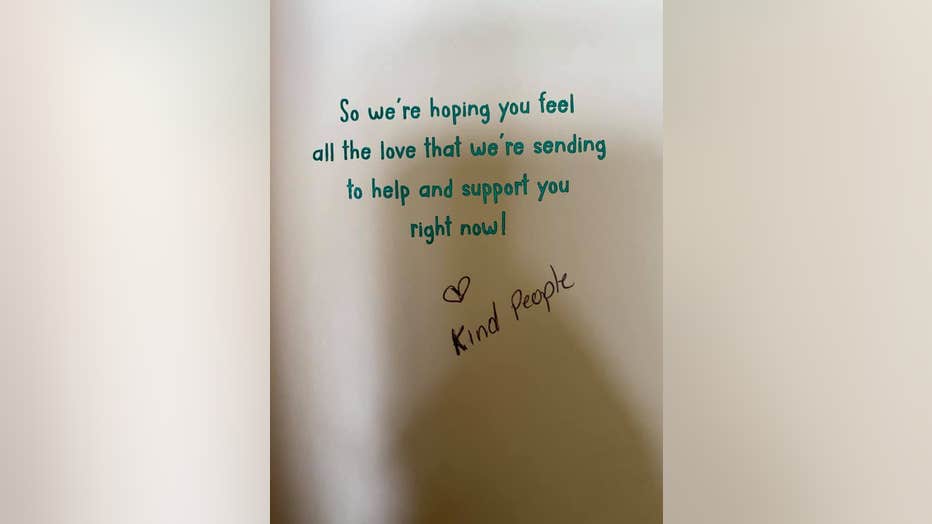 So we're hoping you feel
all the love that we're sending
to help and support you
right now!
♡
Kind People